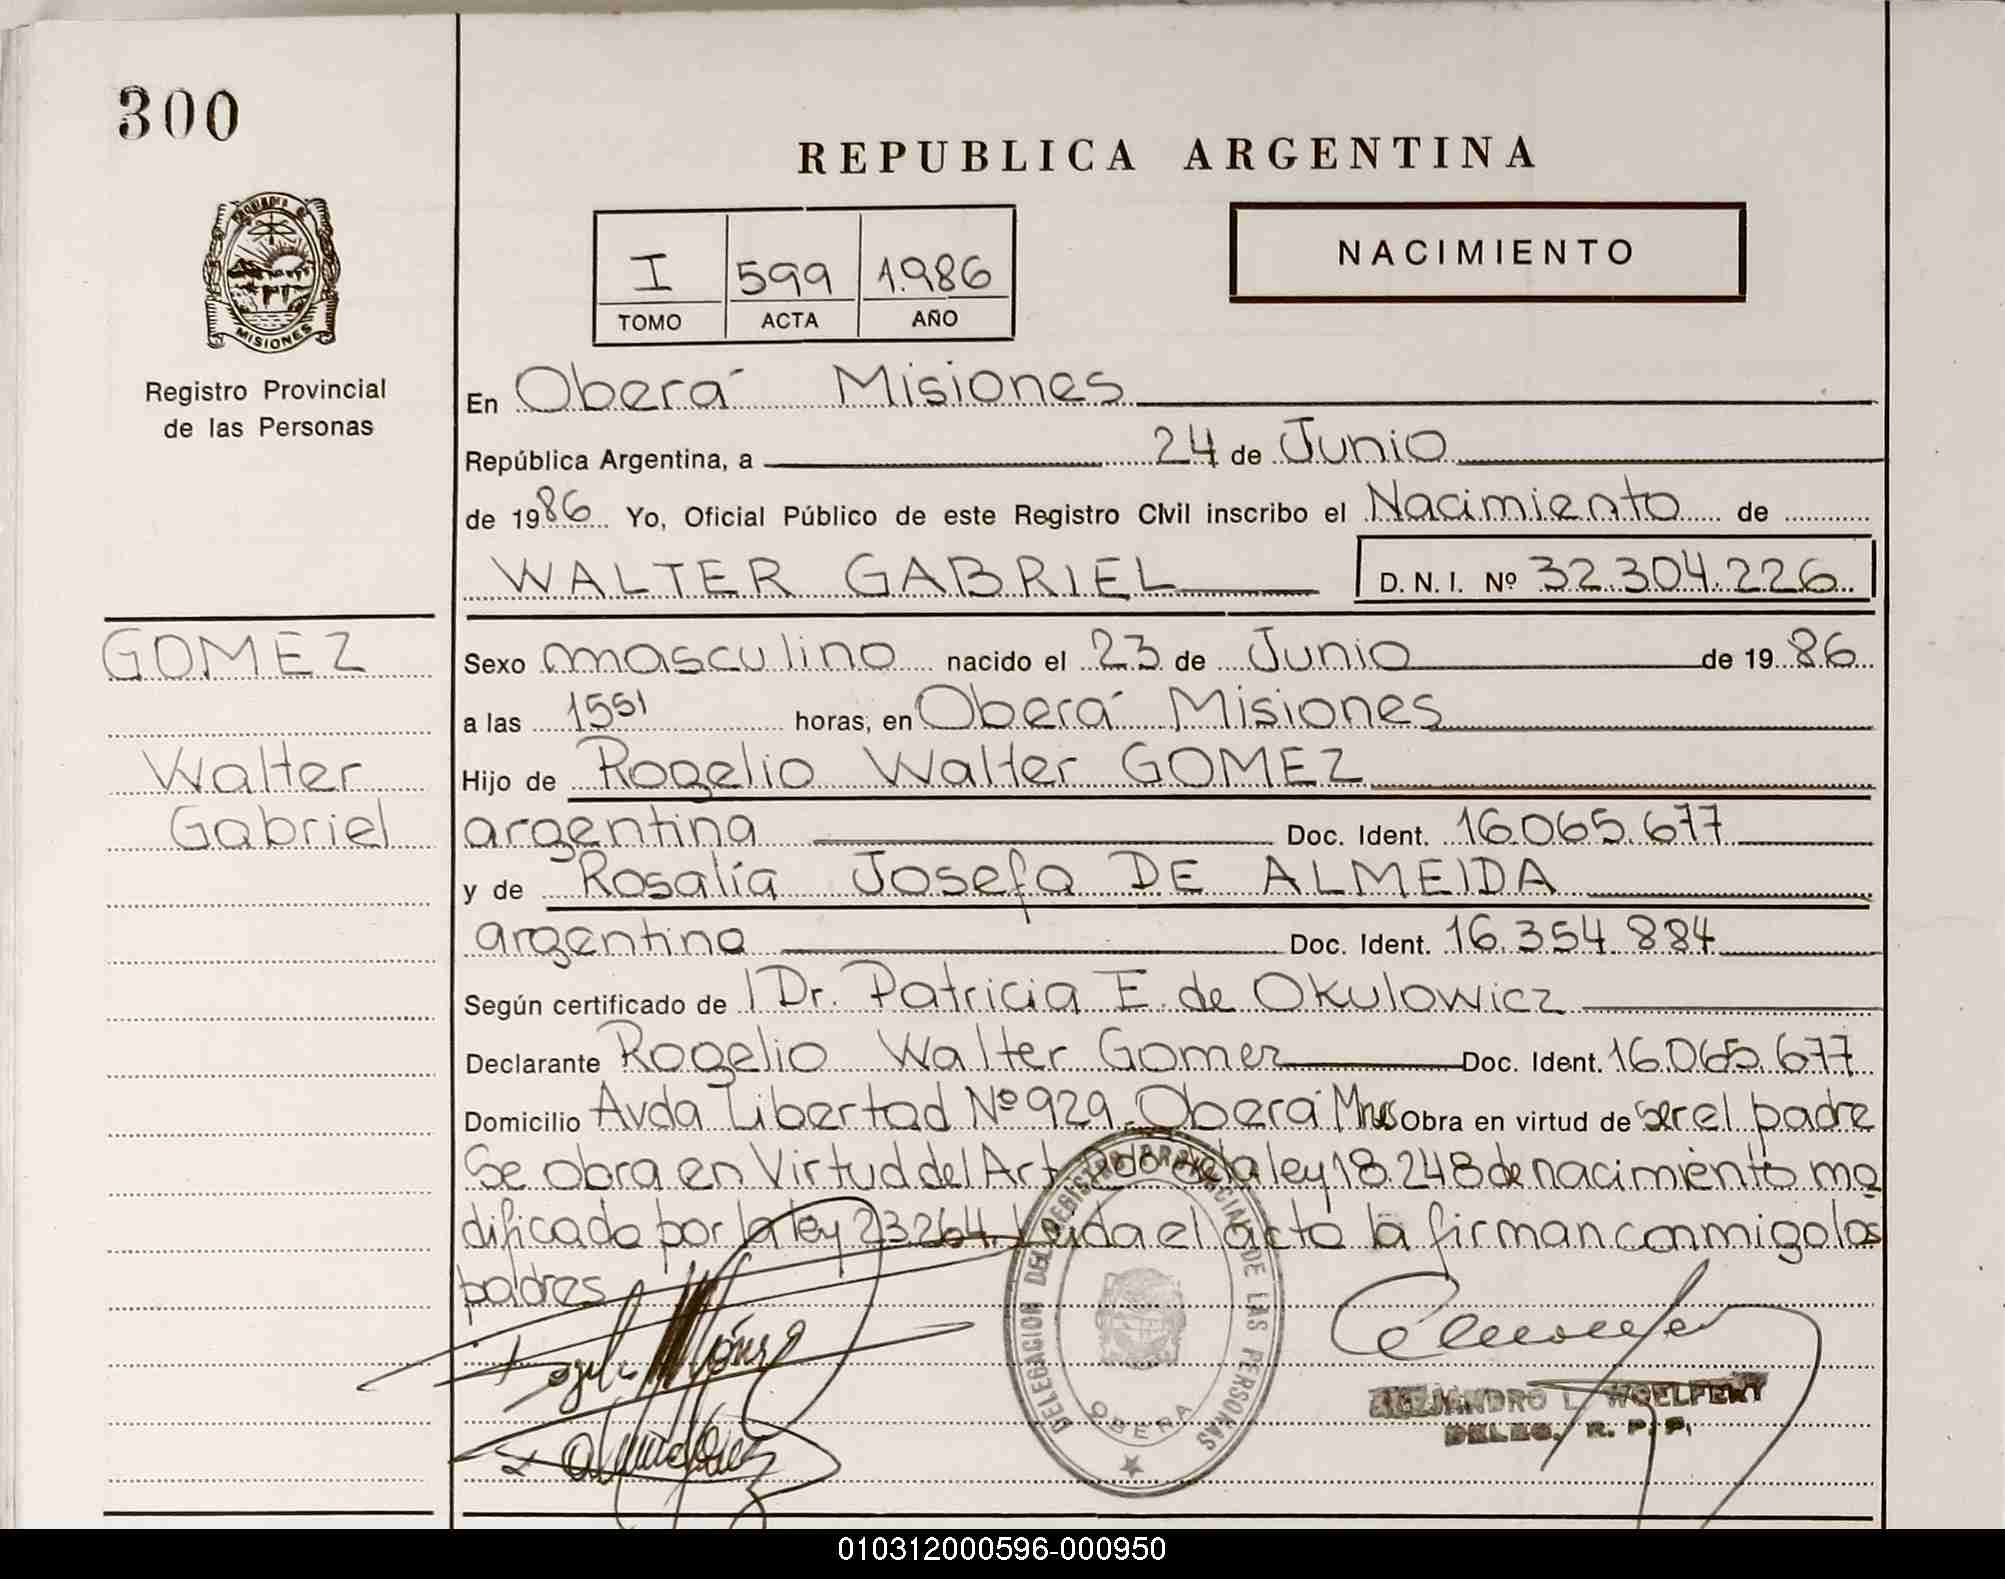 300
REPUBLICA ARGENTINA
I 599 1.986
TOMO ACTA AÑO
NACIMIENTO
MISIONES
Registro Provincial
de las Personas
En Oberá Misiones
República Argentina, a 24 de Junio
de 1986 Yo, Oficial Público de este Registro Civil inscribo el Nacimiento de
WALTER GABRIEL D. N. I. Nº 32.304.226
GOMEZ
Walter
Gabriel
Sexo masculino nacido el 23 de Junio de 1986
a las 1551 horas, en Oberá Misiones
Hijo de Rogelio Walter GOMEZ
argentina Doc. Ident. 16.065.677
y de Rosalía Josefa DE ALMEIDA
argentina Doc. Ident. 16.354.884
Según certificado de Dr. Patricia E. de Okulowicz
Declarante Rogelio Walter Gomez Doc. Ident. 16.065.677
Domicilio Avda Libertad Nº 929 Oberá Mnes Obra en virtud de ser el padre
Se obra en Virtud del Art de la ley 18.248 de nacimiento mo
dificado por la ley 23.264 Leida el acto la firman conmigo los
padres
DELEGACION DEL REGISTRO PROVINCIAL DE LAS PERSONAS
OBERA
ALEJANDRO L. WOELFERT
DELEG. R. P. P.
010312000596-000950